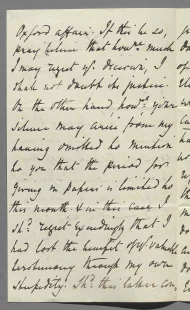 Oxford affair. If this be so,
pray believe that howr. much
I may regret yr. decision, I
shall not doubt its justice.
On the other hand, howr. your
silence may arise from my
having omitted to mention
to you that the period for
giving in papers is limited to
this month & in this case I
shd. regret exceedingly that I
had lost the benefit of yr. valuable
testimony through my own
stupidity. Shd. this latter